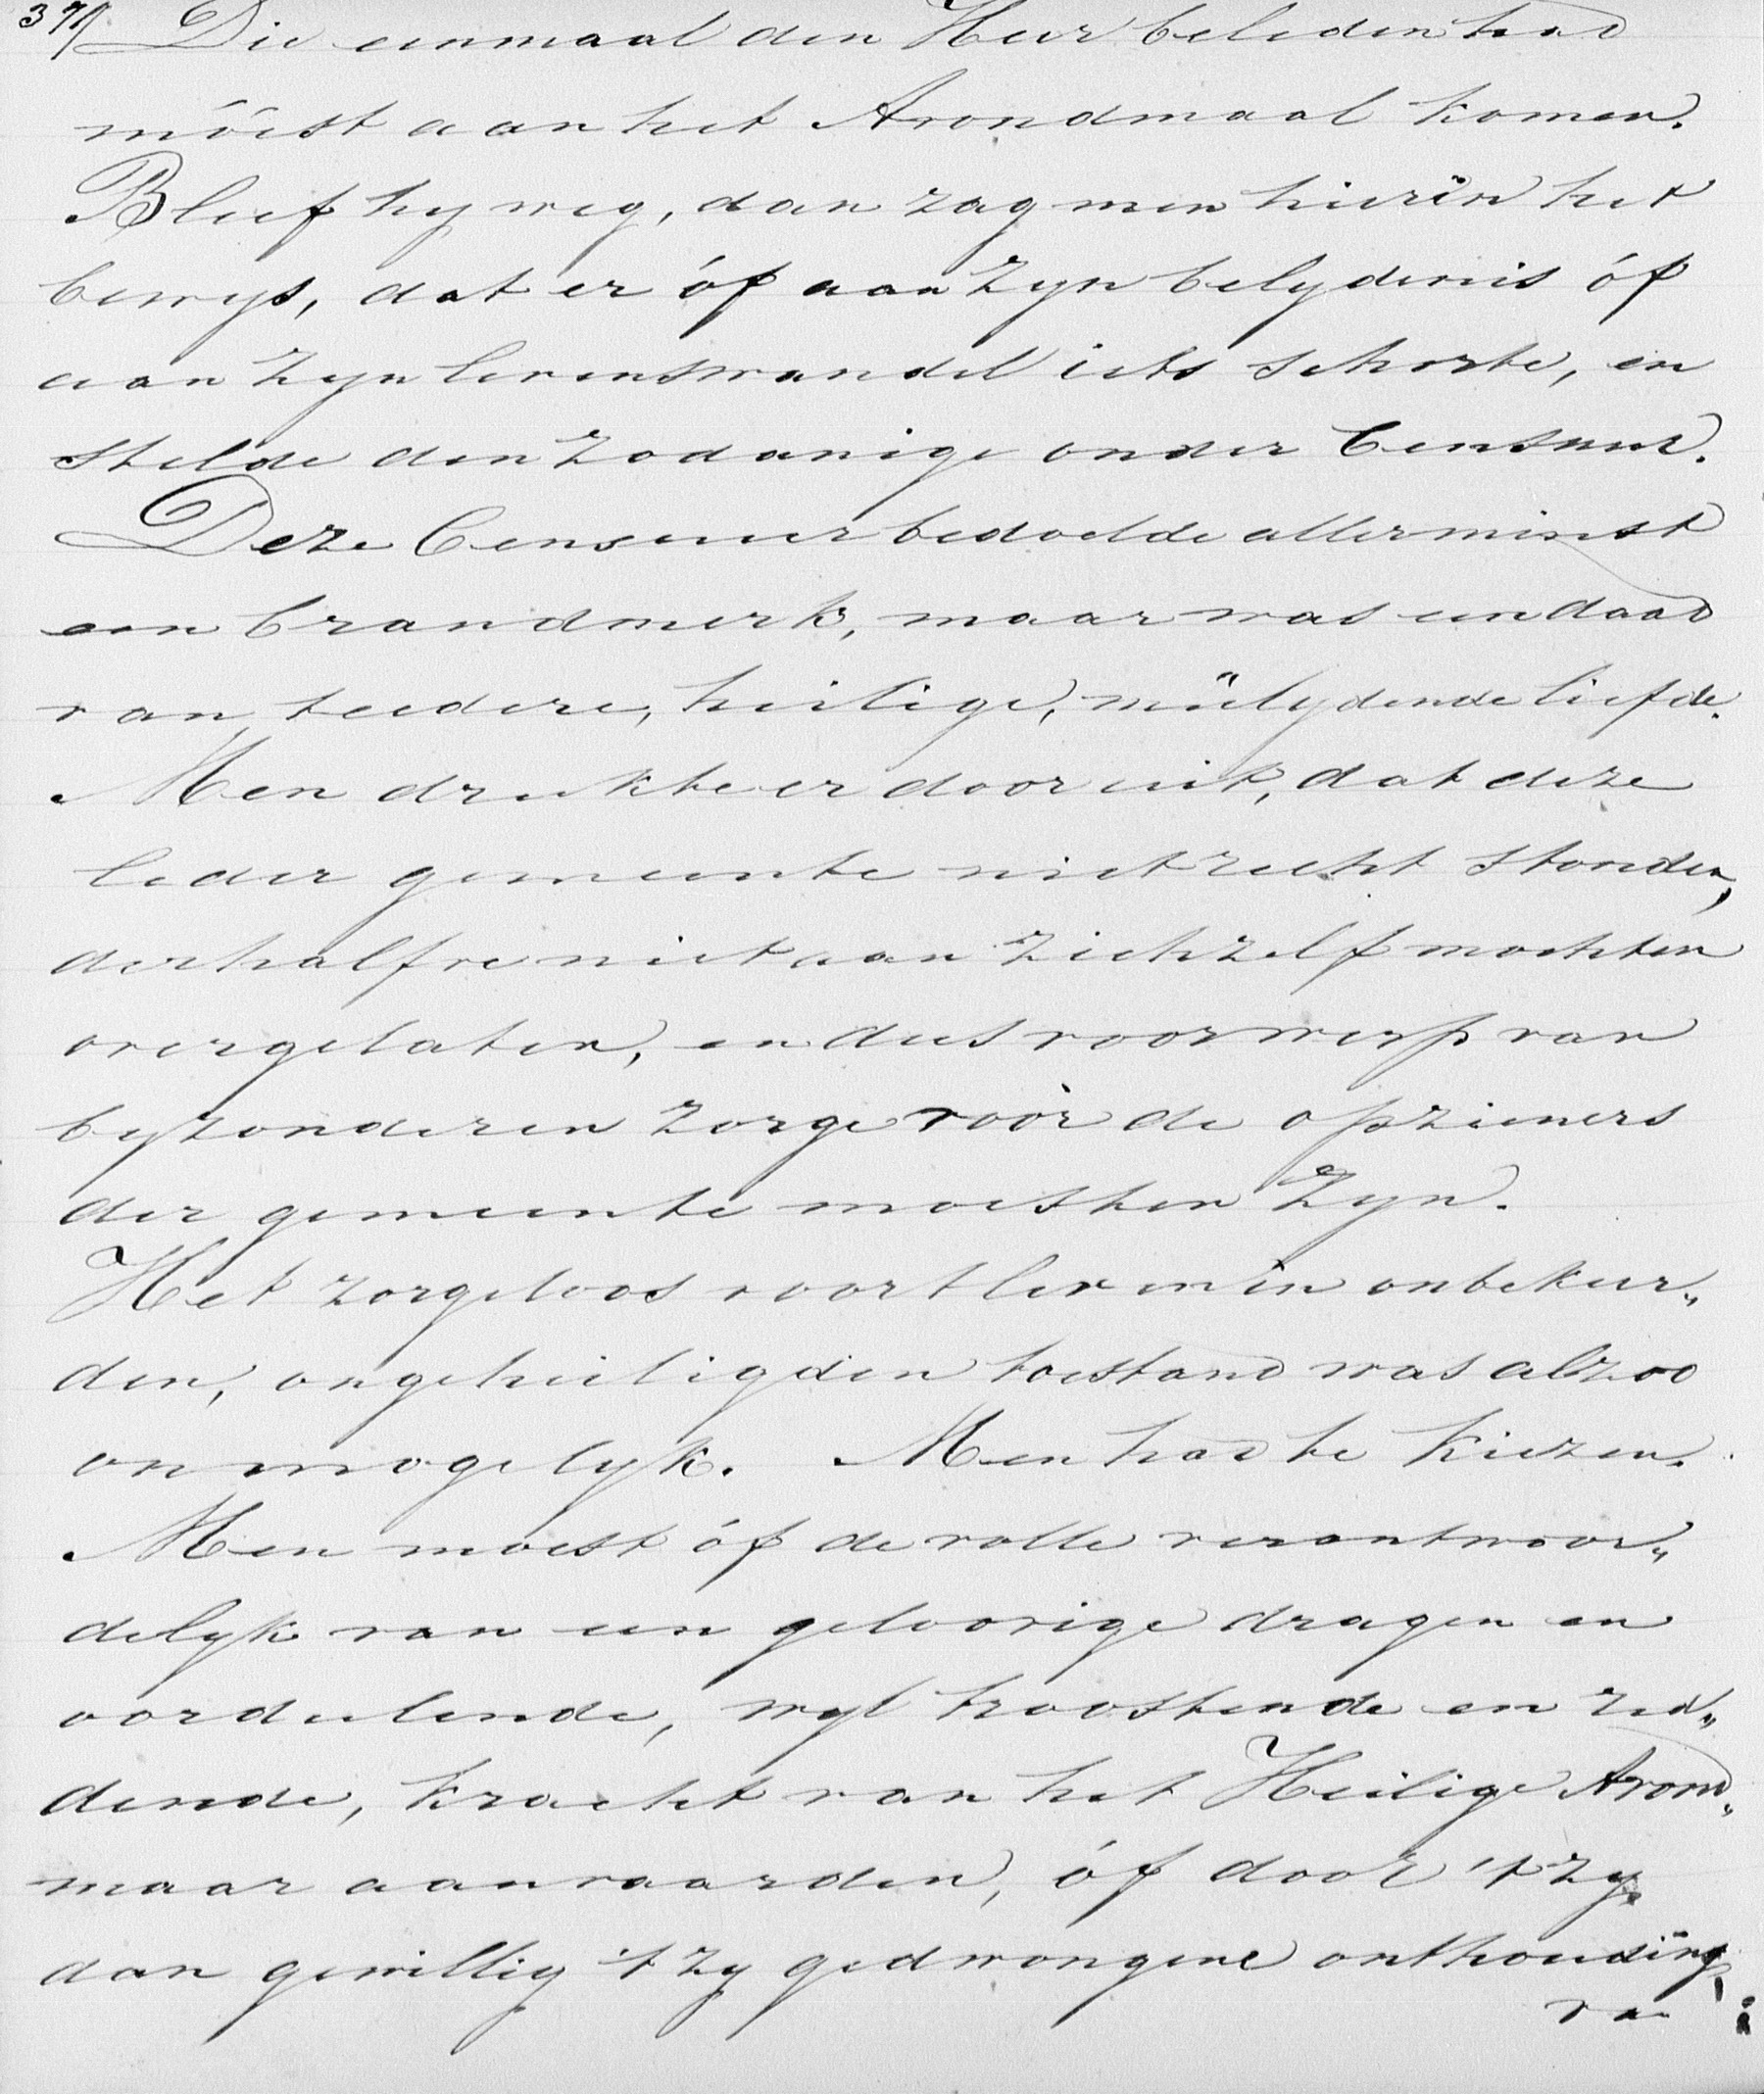 37/ Die eenmaal den Heer beleden had
móést aan het Avondmaal komen.
Bleef hy weg, dan zag men hierin het
bewys, dat er óf aan zyn belydenis óf
aan zyn levenswandel iets schortte, en
stelde den zodanige onder Censuur.
Deze Censuur bedoelde allerminst
een brandmerk, maar was een daad
van teedere, heilige, meêlydende liefde.
Men drukte er door uit, dat deze
leder gemeente niet recht stonden,
derhalfve niet aan zichzelf mochten
overgelaten, en dus voorwerp van
byzonderen zorge voòr de opzieners
der gemeente moesten zyn.
Het zorgeloos voortleven in onbekeer„
den, ongeheiligden toestand was alzoo
onmogelyk. Men had te kiezen.
Men moest óf de volle verantwoor„
delyk van een geloovige dragen en
oordeelende, wyl troostende en red„
dende, kracht van het Heilige Avond„
maar aanvaarden, óf door 't zy
dan gewillig 't zy gedwongene onthouding,
va